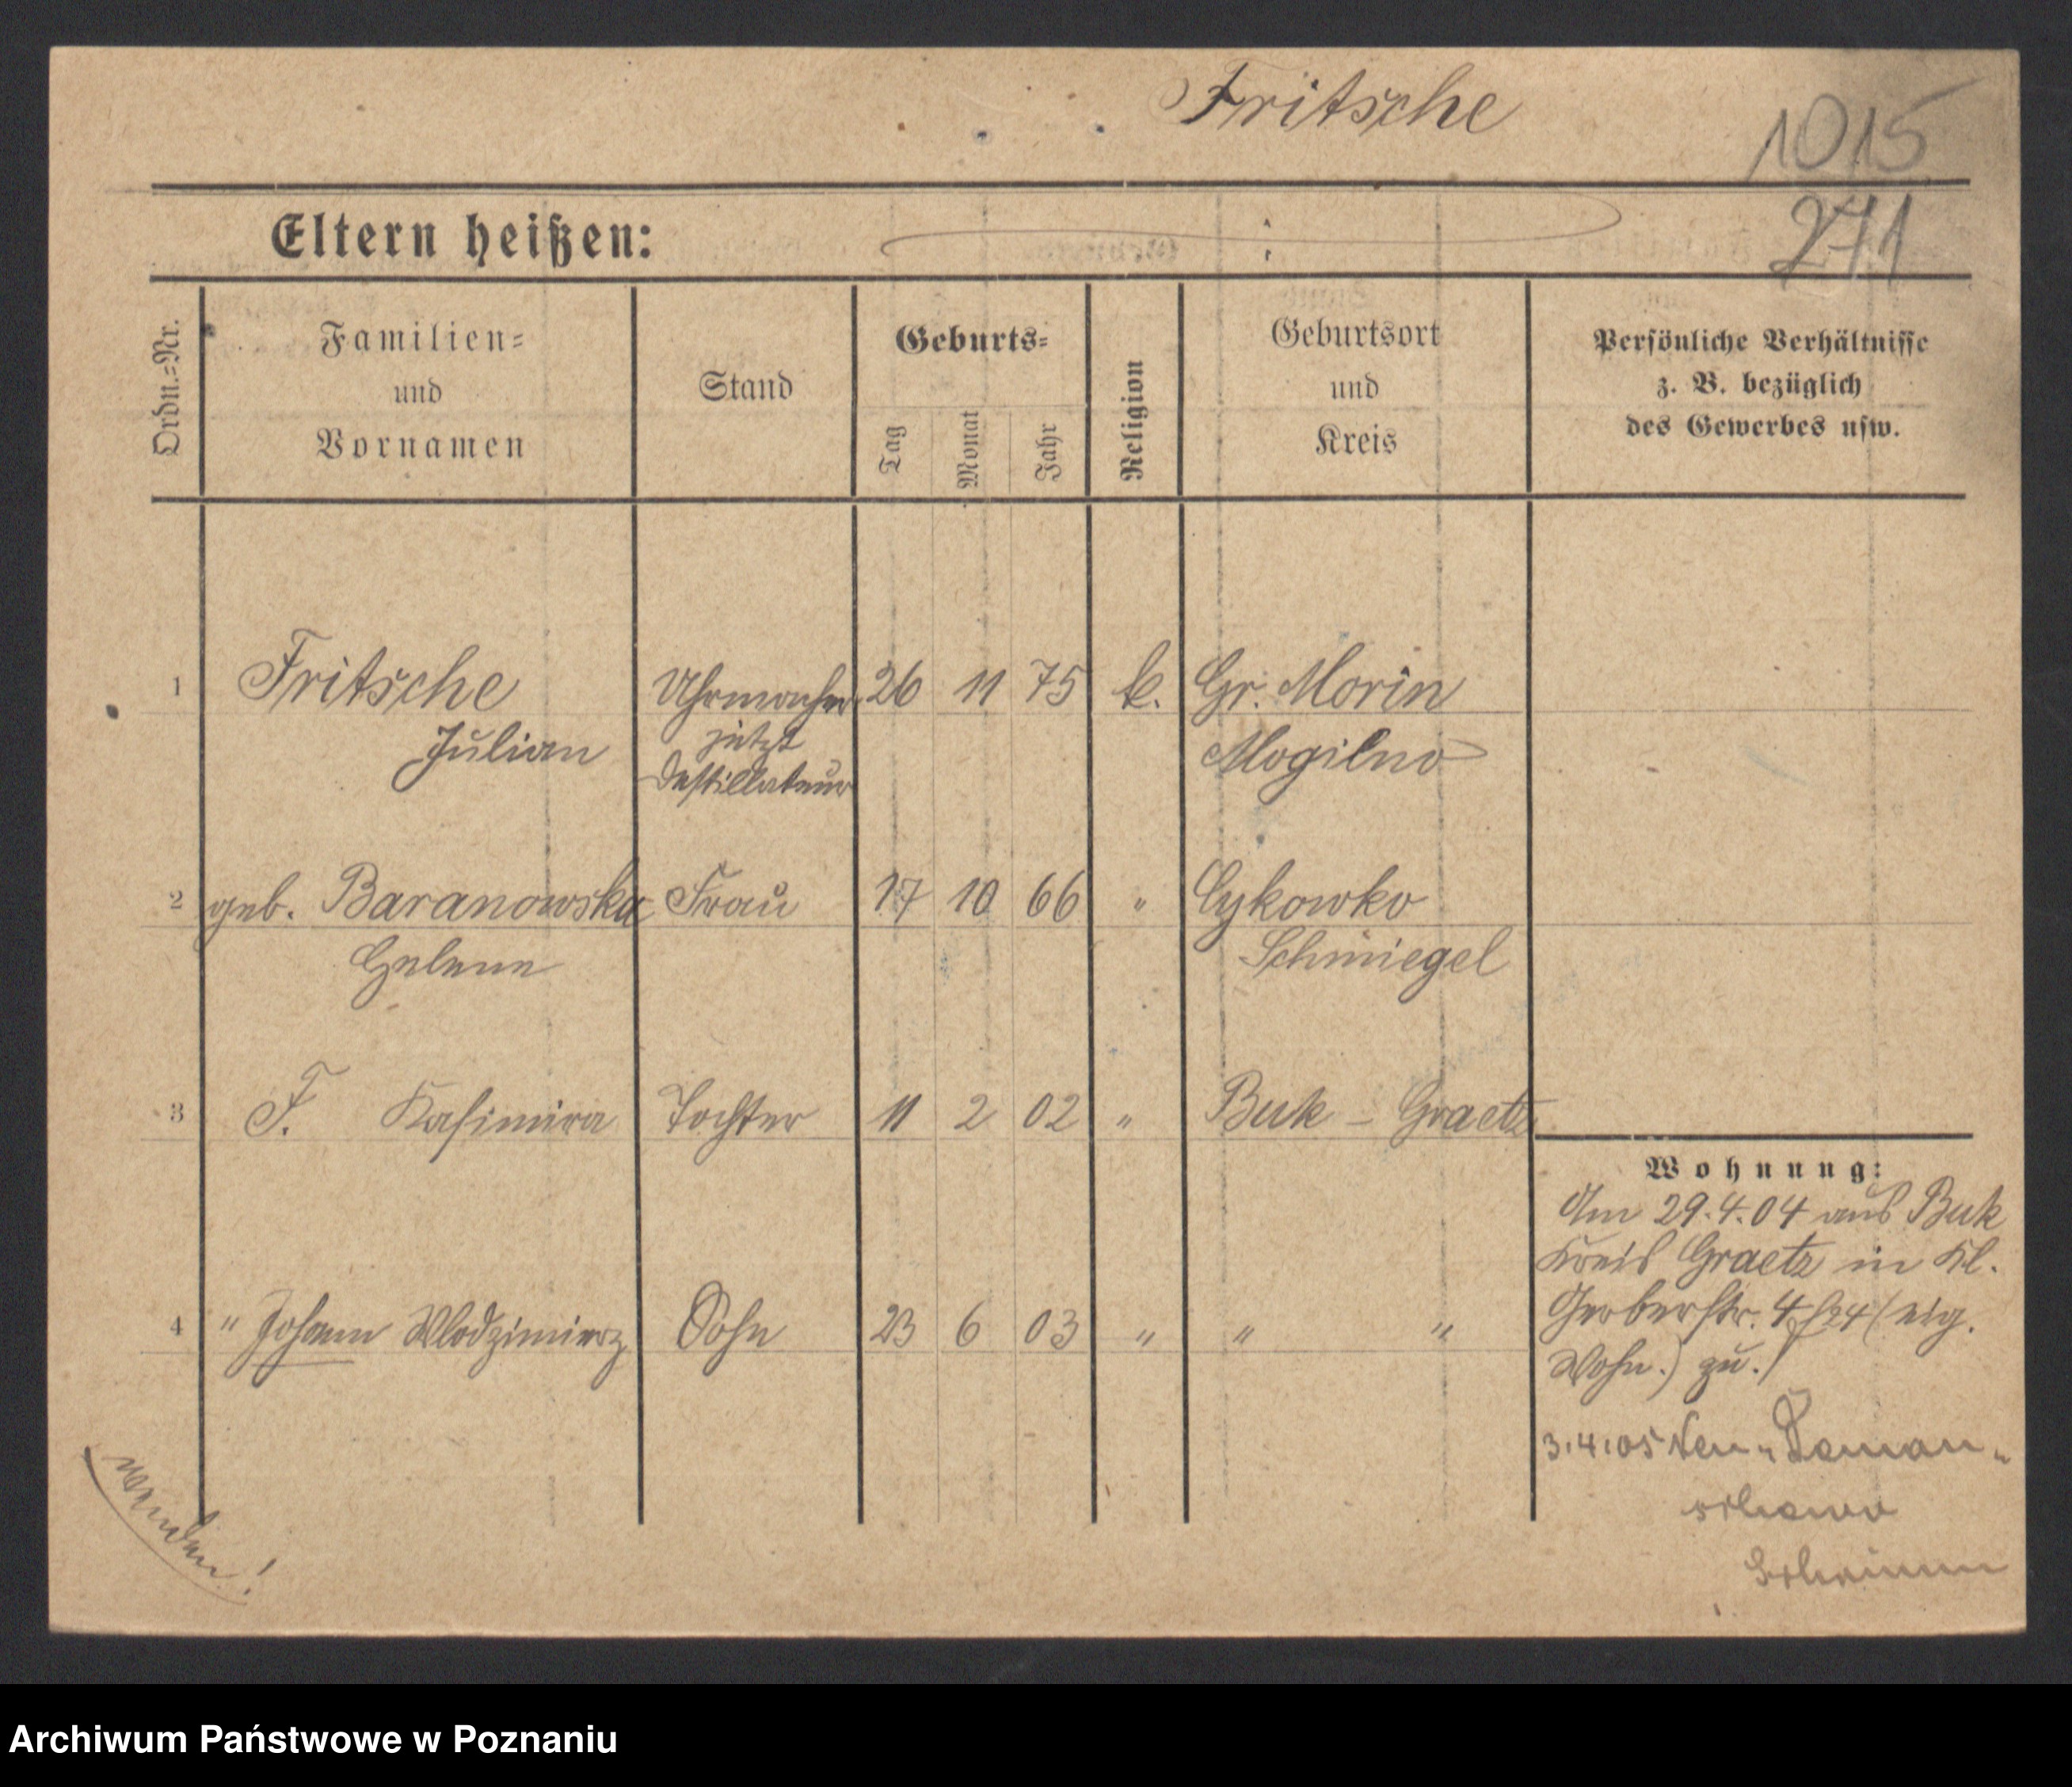 Fritsche
1015
271
Eltern heißen:
Ordn.-Nr.
Familien- und Vornamen
Stand
Geburts-
Tag
Monat
Jahr
Religion
Geburtsort und Kreis
Persönliche Verhältnisse
z. B. bezüglich
des Gewerbes usw.
1 Fritsche Uhrmacher 26 11 75 k. Gr. Morin
Julian jetzt Mogilno
Destillateur
2 geb. Baranowska Frau 17 10 66 " Cykowko
Helene Schmiegel
3 F. Kasimira Tochter 11 2 02 " Buk - Graetz
4 " Johann Wlodzimierz Sohn 23 6 03 " " "
Wohnung:
Am 29.4.04 aus Buk
Kreis Graetz in Kl.
Gerberstr. 4 (eig.
Wohn.) zu.
3.4.05 Neu-
wenden!
Archiwum Państwowe w Poznaniu